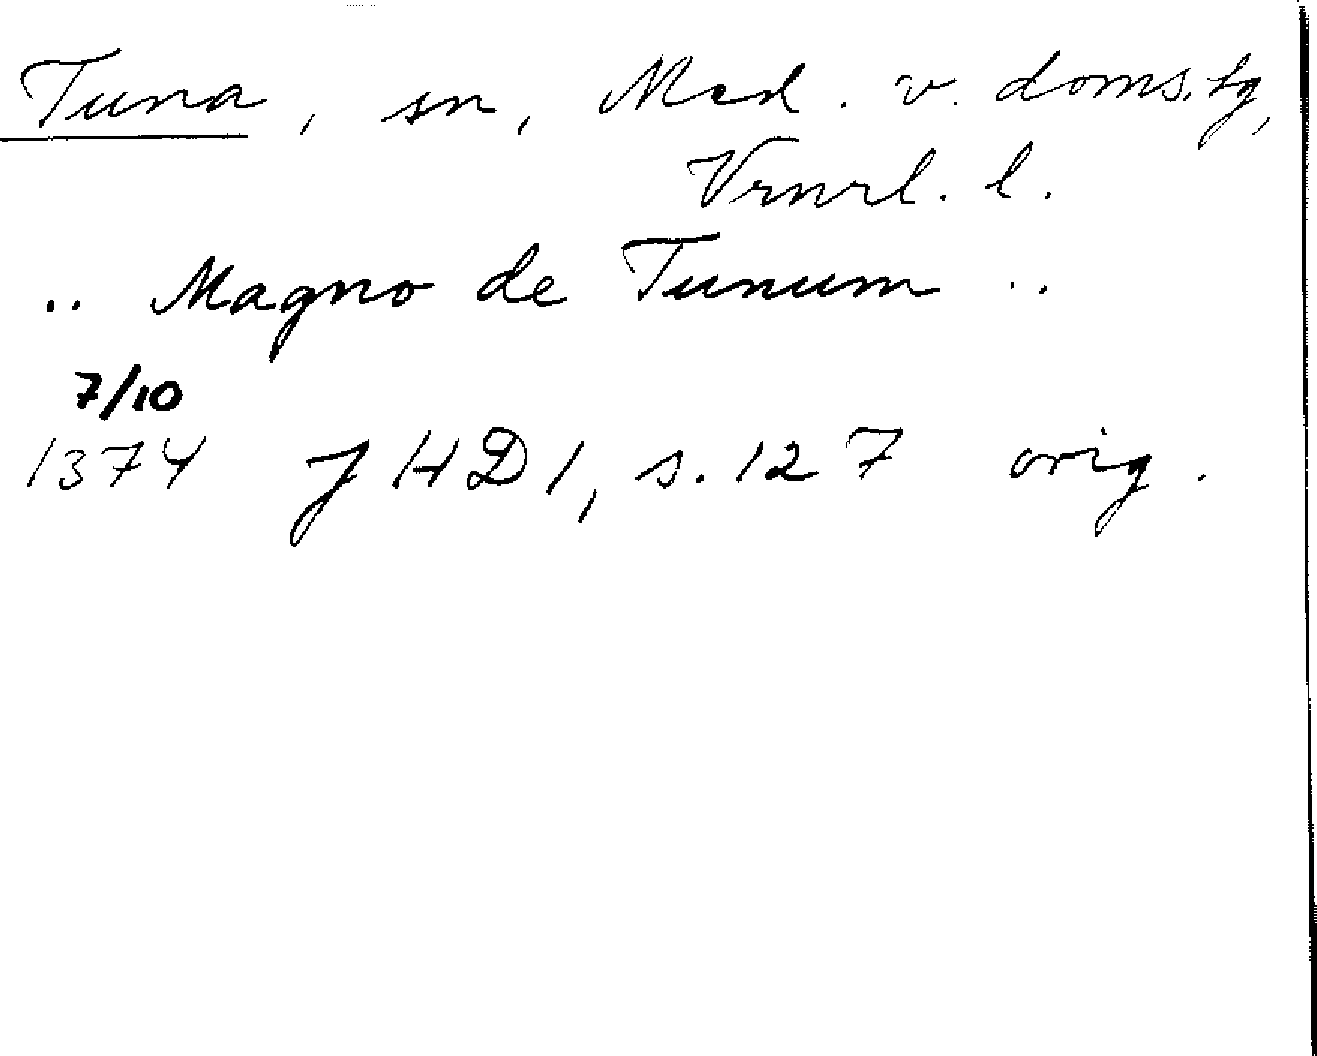 Tuna, sn, Med. v. doms.tg,
Vrnrl. l.
.. Magno de Tunum ..
7/10
1374 JHD1, s. 127 orig.